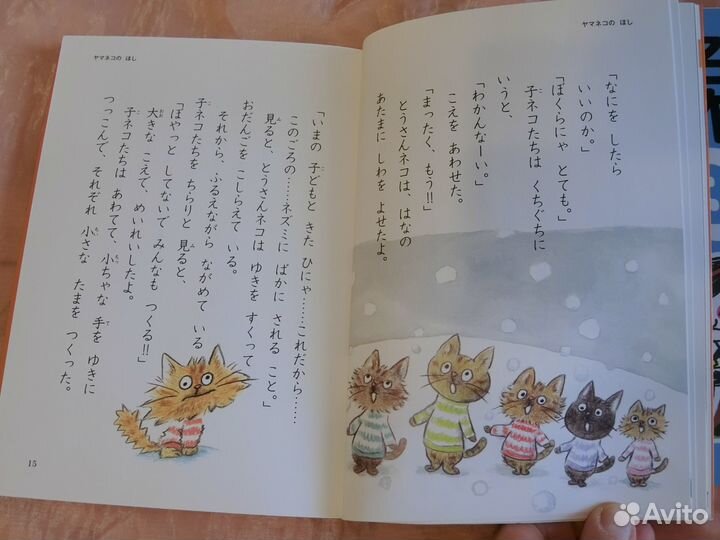 ヤマネコの ほし
「なにを したら
いいのか。」
「ぼくらにゃ とても。」
子ネコたちは くちぐちに
いうと、
「わかんなーい。」
こえを あわせた。
「まったく、もう!!」
とうさんネコは、はなの
あたまに しわを よせたよ。
ヤマネコの ほし
「いまの 子どもと きた ひにゃ……これだから……
このごろの……ネズミに ばかに される こと。」
見ると、とうさんネコは ゆきを すくって
おだんごを こしらえて いる。
それから、ふるえながら ながめて いる
子ネコたちを ちらりと 見ると、
「ぼやっと してないで みんなも つくる!!」
大きな こえで、めいれいしたよ。
子ネコたちは あわてて、小ちゃな 手を ゆきに
つっこんで、それぞれ 小さな たまを つくった。
15
Avito